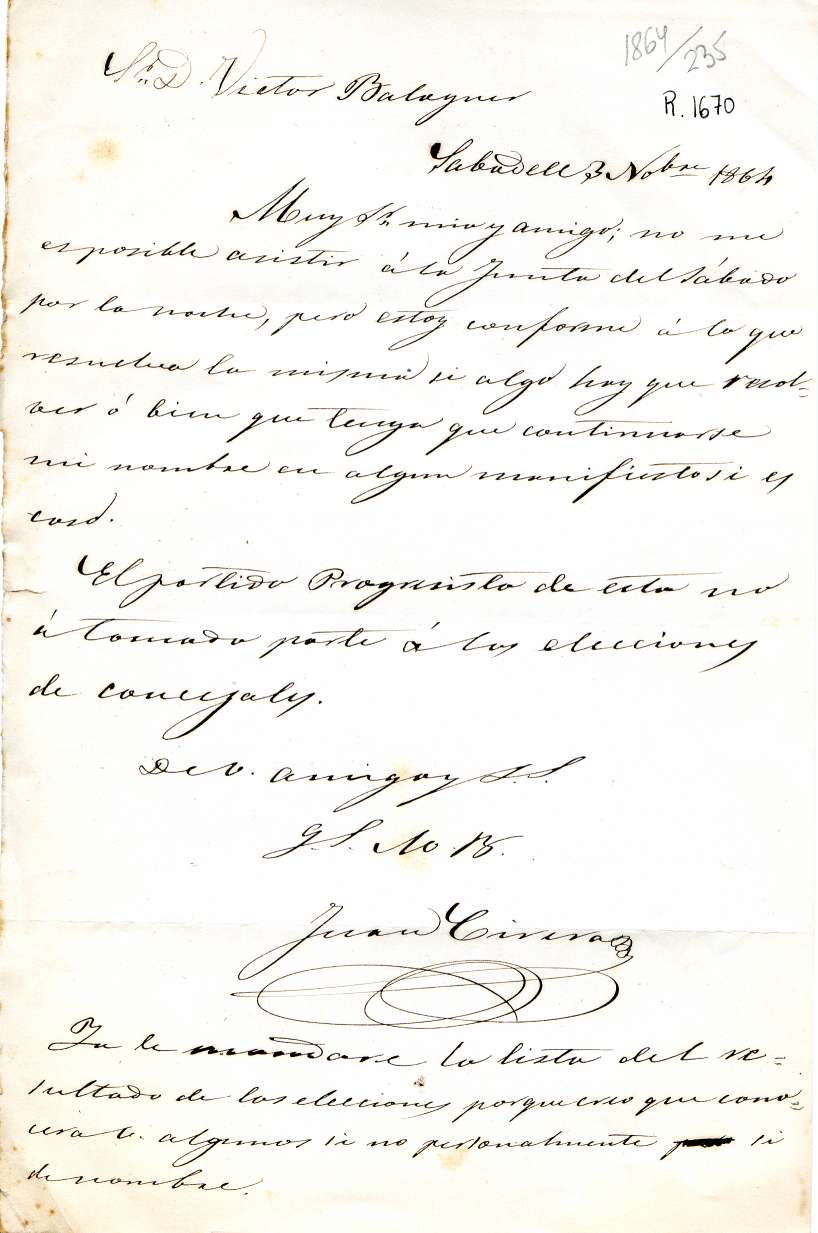 1864/235
R. 1670
Sr. D. Victor Balaguer
Sabadell 3 Nobre 1864
Muy Sr. mio y amigo; no me
es posible asistir á la Junta del Sábado
por la noche, pero estoy conforme á lo que
resuelva la misma si algo hay que resol-
ver ó bien que tenga que continuarse
mi nombre en algun manifiesto si es
caso.
El partido Progresista de esta no
á tomado parte á las elecciones
de concejales.
De V. amigo y S. S.
q. S. M. B.
Juan Cirera
Ya le mandare la lista del re-
sultado de las elecciones porque creo que cono-
cera V. algunos si no personalmente si
de nombre.